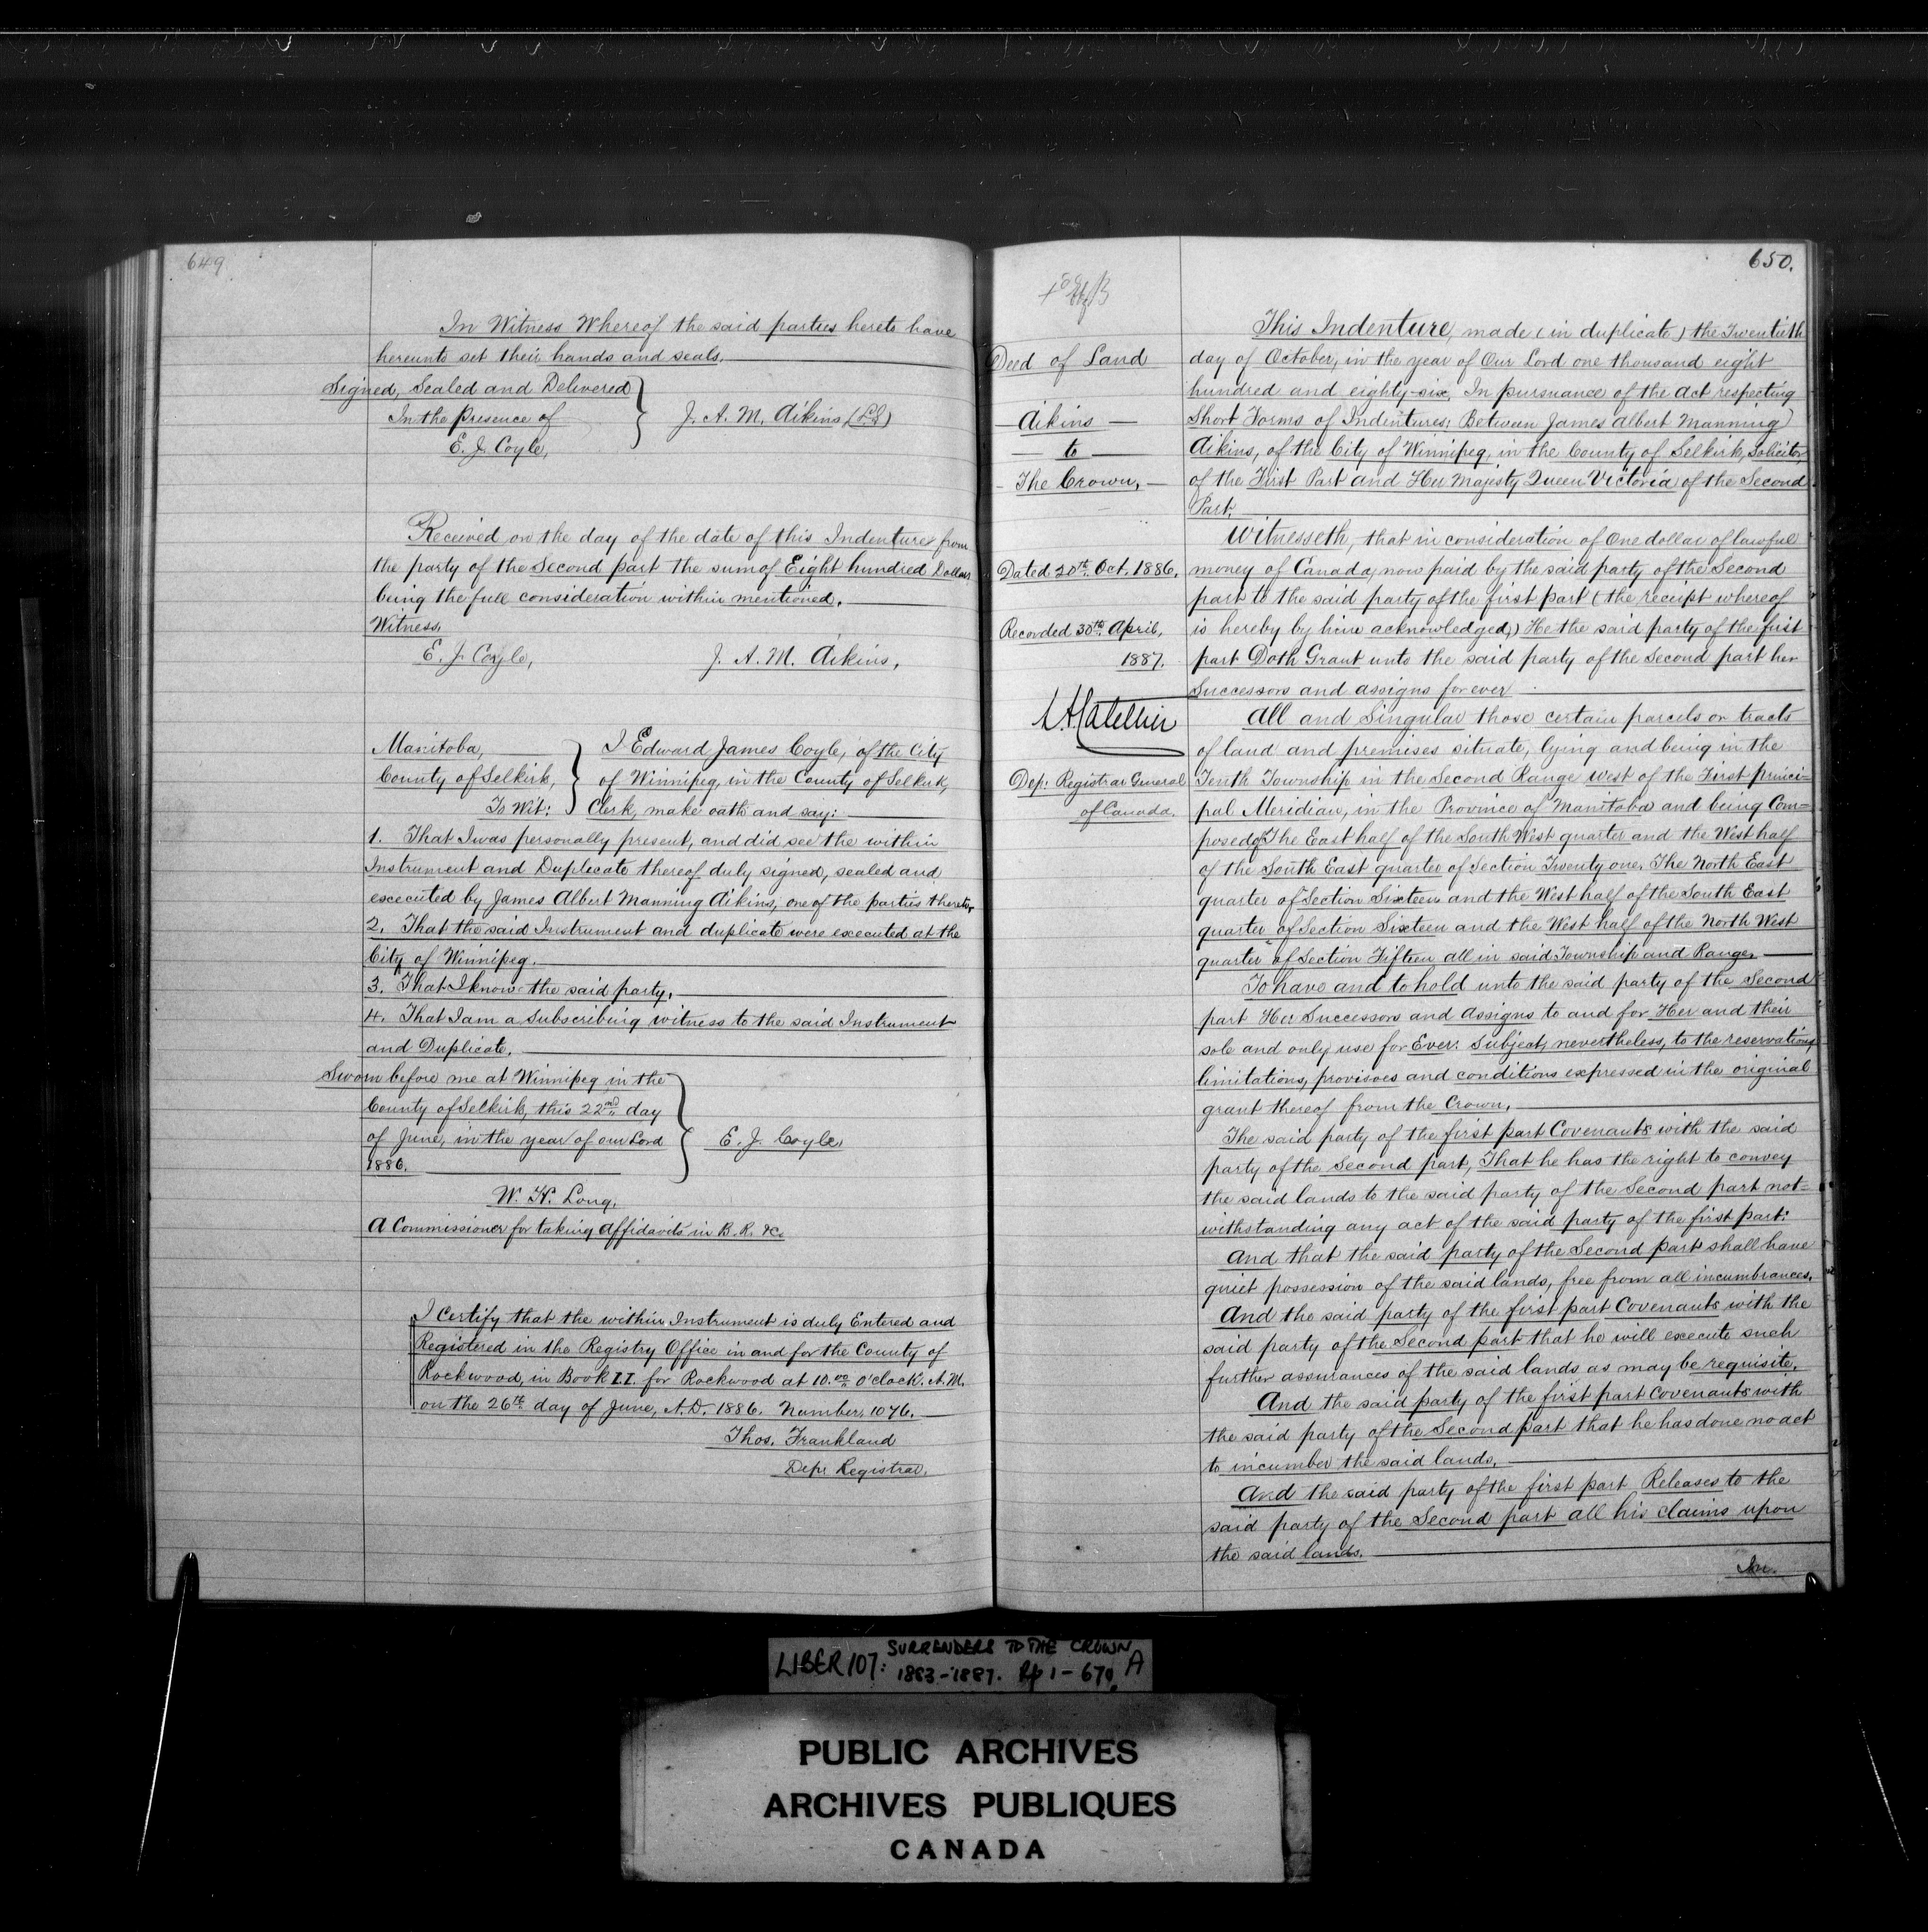 649
In Witness Whereof the said parties hereto have
hereunto set their hands and seals.
Signed, Sealed and Delivered
In the presence of
E. J. Coyle,
J. A. M. Aikins (LS)
Received on the day of the date of this Indenture from
the party of the Second part the sum of Eight hundred Dollars
being the full consideration within mentioned.
Witness,
E. J. Coyle,
J. A. M. Aikins,
Manitoba,
County of Selkirk,
To Wit:
I Edward James Coyle, of the City
of Winnipeg, in the County of Selkirk,
Clerk, make oath and say:
1. That I was personally present, and did see the within
Instrument and Duplicate thereof duly signed, sealed and
executed by James Albert Manning Aikins, one of the parties thereto,
2. That the said Instrument and duplicate were executed at the
City of Winnipeg.
3. That I know the said party,
4. That I am a Subscribing witness to the said Instrument
and Duplicate.
Sworn before me at Winnipeg in the
County of Selkirk, this 22nd day
of June, in the year of our Lord
1886.
E. J. Coyle,
W. H. Long,
A Commissioner for taking affidavits in B. R. &c.
I Certify that the within Instrument is duly Entered and
Registered in the Registry Office in and for the County of
Rockwood, in Book II. for Rockwood at 10.00 o'clock. A. M.
on the 26th day of June, A. D. 1886. Number 1076.
Thos. Frankland
Depr Registrar.
650.
Deed of Land
Aikins
to
The Crown,
Dated 20th Oct. 1886.
Recorded 30th April,
1887.
Dep: Registrar General
of Canada.
This Indenture, made (in duplicate) the Twentieth
day of October, in the year of Our Lord one thousand eight
hundred and eighty-six, In pursuance of the act respecting
Short Forms of Indentures; Between James Albert Manning
Aikins, of the City of Winnipeg, in the County of Selkirk, Solicitor,
of the First Part and Her Majesty Queen Victoria of the Second
Part,
Witnesseth, that in consideration of One dollar of lawful
money of Canada, now paid by the said party of the Second
part to the said party of the first part (the receipt whereof
is hereby by him acknowledged,) He the said party of the first
part Doth Grant unto the said party of the Second part her
Successors and assigns for ever
All and Singular those certain parcels or tracts
of land and premises situate, lying and being in the
Tenth Township in the Second Range west of the First princi=
pal Meridian, in the Province of Manitoba and being Com=
posed of The East half of the South West quarter and the West half
of the South East quarter of Section Twenty one, The North East
quarter of Section Sixteen and the West half of the South East
quarter of Section Sixteen and the West half of the North West
quarter of Section Fifteen all in said Township and Range,
To have and to hold unto the said party of the Second
part Her Successors and Assigns to and for Her and their
sole and only use for Ever: Subject, nevertheless, to the reservations
limitations, provisoes and conditions expressed in the original
grant thereof from the Crown,
The said party of the first part Covenants with the said
party of the Second part, That he has the right to convey
the said lands to the said party of the Second part not=
withstanding any act of the said party of the first part:
And that the said party of the Second part shall have
quiet possession of the said lands, free from all incumbrances.
And the said party of the first part Covenants with the
said party of the Second part that he will execute such
further assurances of the said lands as may be requisite.
And the said party of the first part Covenants with
the said party of the Second part that he has done no act
to incumber the said lands,
And the said party of the first part Releases to the
said party of the Second part all his claims upon
the said lands.
LIBER 107: SURRENDERS TO THE CROWN A
1883-1887. Pp 1-670.
PUBLIC ARCHIVES
ARCHIVES PUBLIQUES
CANADA